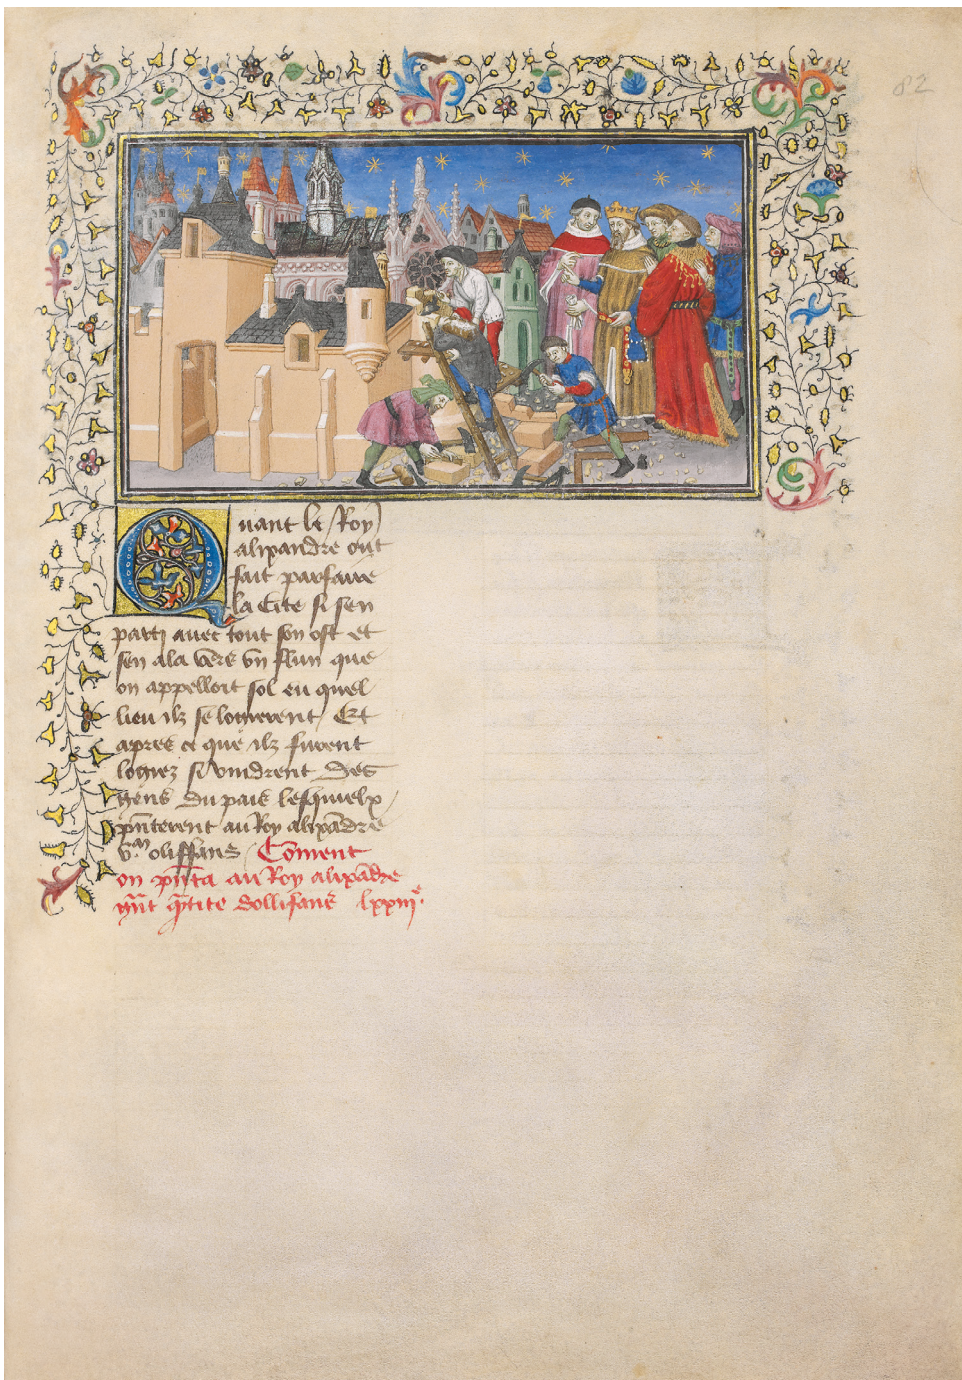 82
Quant le Roy
alixandre out
fait parfaire
la Cite si sen
parti avec tout son ost et
sen ala vers vn flun que
on appelloit sol en quel
lieu ilz se logierent Et
apres ce que ilz furent
logiez si vindrent des
gens du pais lesquielx
pñterent au Roy alixãdre
v.^m oliffans Coment
on pñta au Roy alixãdre
gñt qãtite dollifans lxxiij^e.